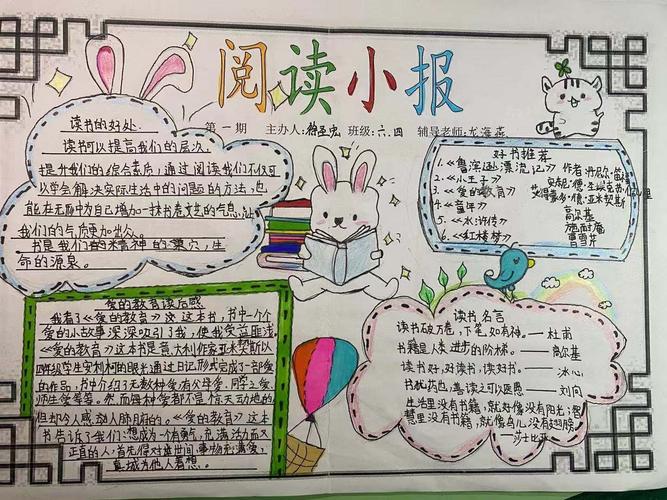 阅读小报
第一期 主办人: 班级:六.四 辅导老师:龙海燕
读书的好处
读书可以提高我们的层次,
提升我们的综合素质,通过阅读我们不仅可
以学会解决实际生活中的问题的方法,也
能在无形中为自己增加一抹书卷文的气息,让
我们的气质更加出众。
书是我们的精神的巢穴,生
命的源泉。
好书推荐
1.《鲁滨逊漂流记》 作者:丹尼尔·笛福
2.《小王子》
3.《爱的教育》
4.《童年》 高尔基
5.《水浒传》 施耐庵
6.《红楼梦》 曹雪芹
爱的教育读后感
我看了《爱的教育》这本书,书中一个个
爱的小故事深深吸引了我,使我受益匪浅。
《爱的教育》这本书是意大利作家亚米契斯以
四年级学生安利柯的眼光通过日记形式完成了一部爱
的作品,书中介绍了无数种爱有父母爱、同学之爱、
师生爱等等。然而每种爱都不是惊天动地的,
但却令人感动人肺腑的。《爱的教育》这本
书告诉了我们:想成为一个有勇气、充满活力而又
正直的人:首先得对虚世间、事物充满爱,
真诚为他人着想。
读书名言
读书破万卷,下笔如有神。——杜甫
书籍是人类进步的阶梯。——高尔基
读书好,好读书,读好书。——冰心
书犹药也,善读之可以医愚——刘向
生活里没有书籍,就好像没有阳光;智
慧里没有书籍,就像鸟儿没有翅膀
——莎士比亚